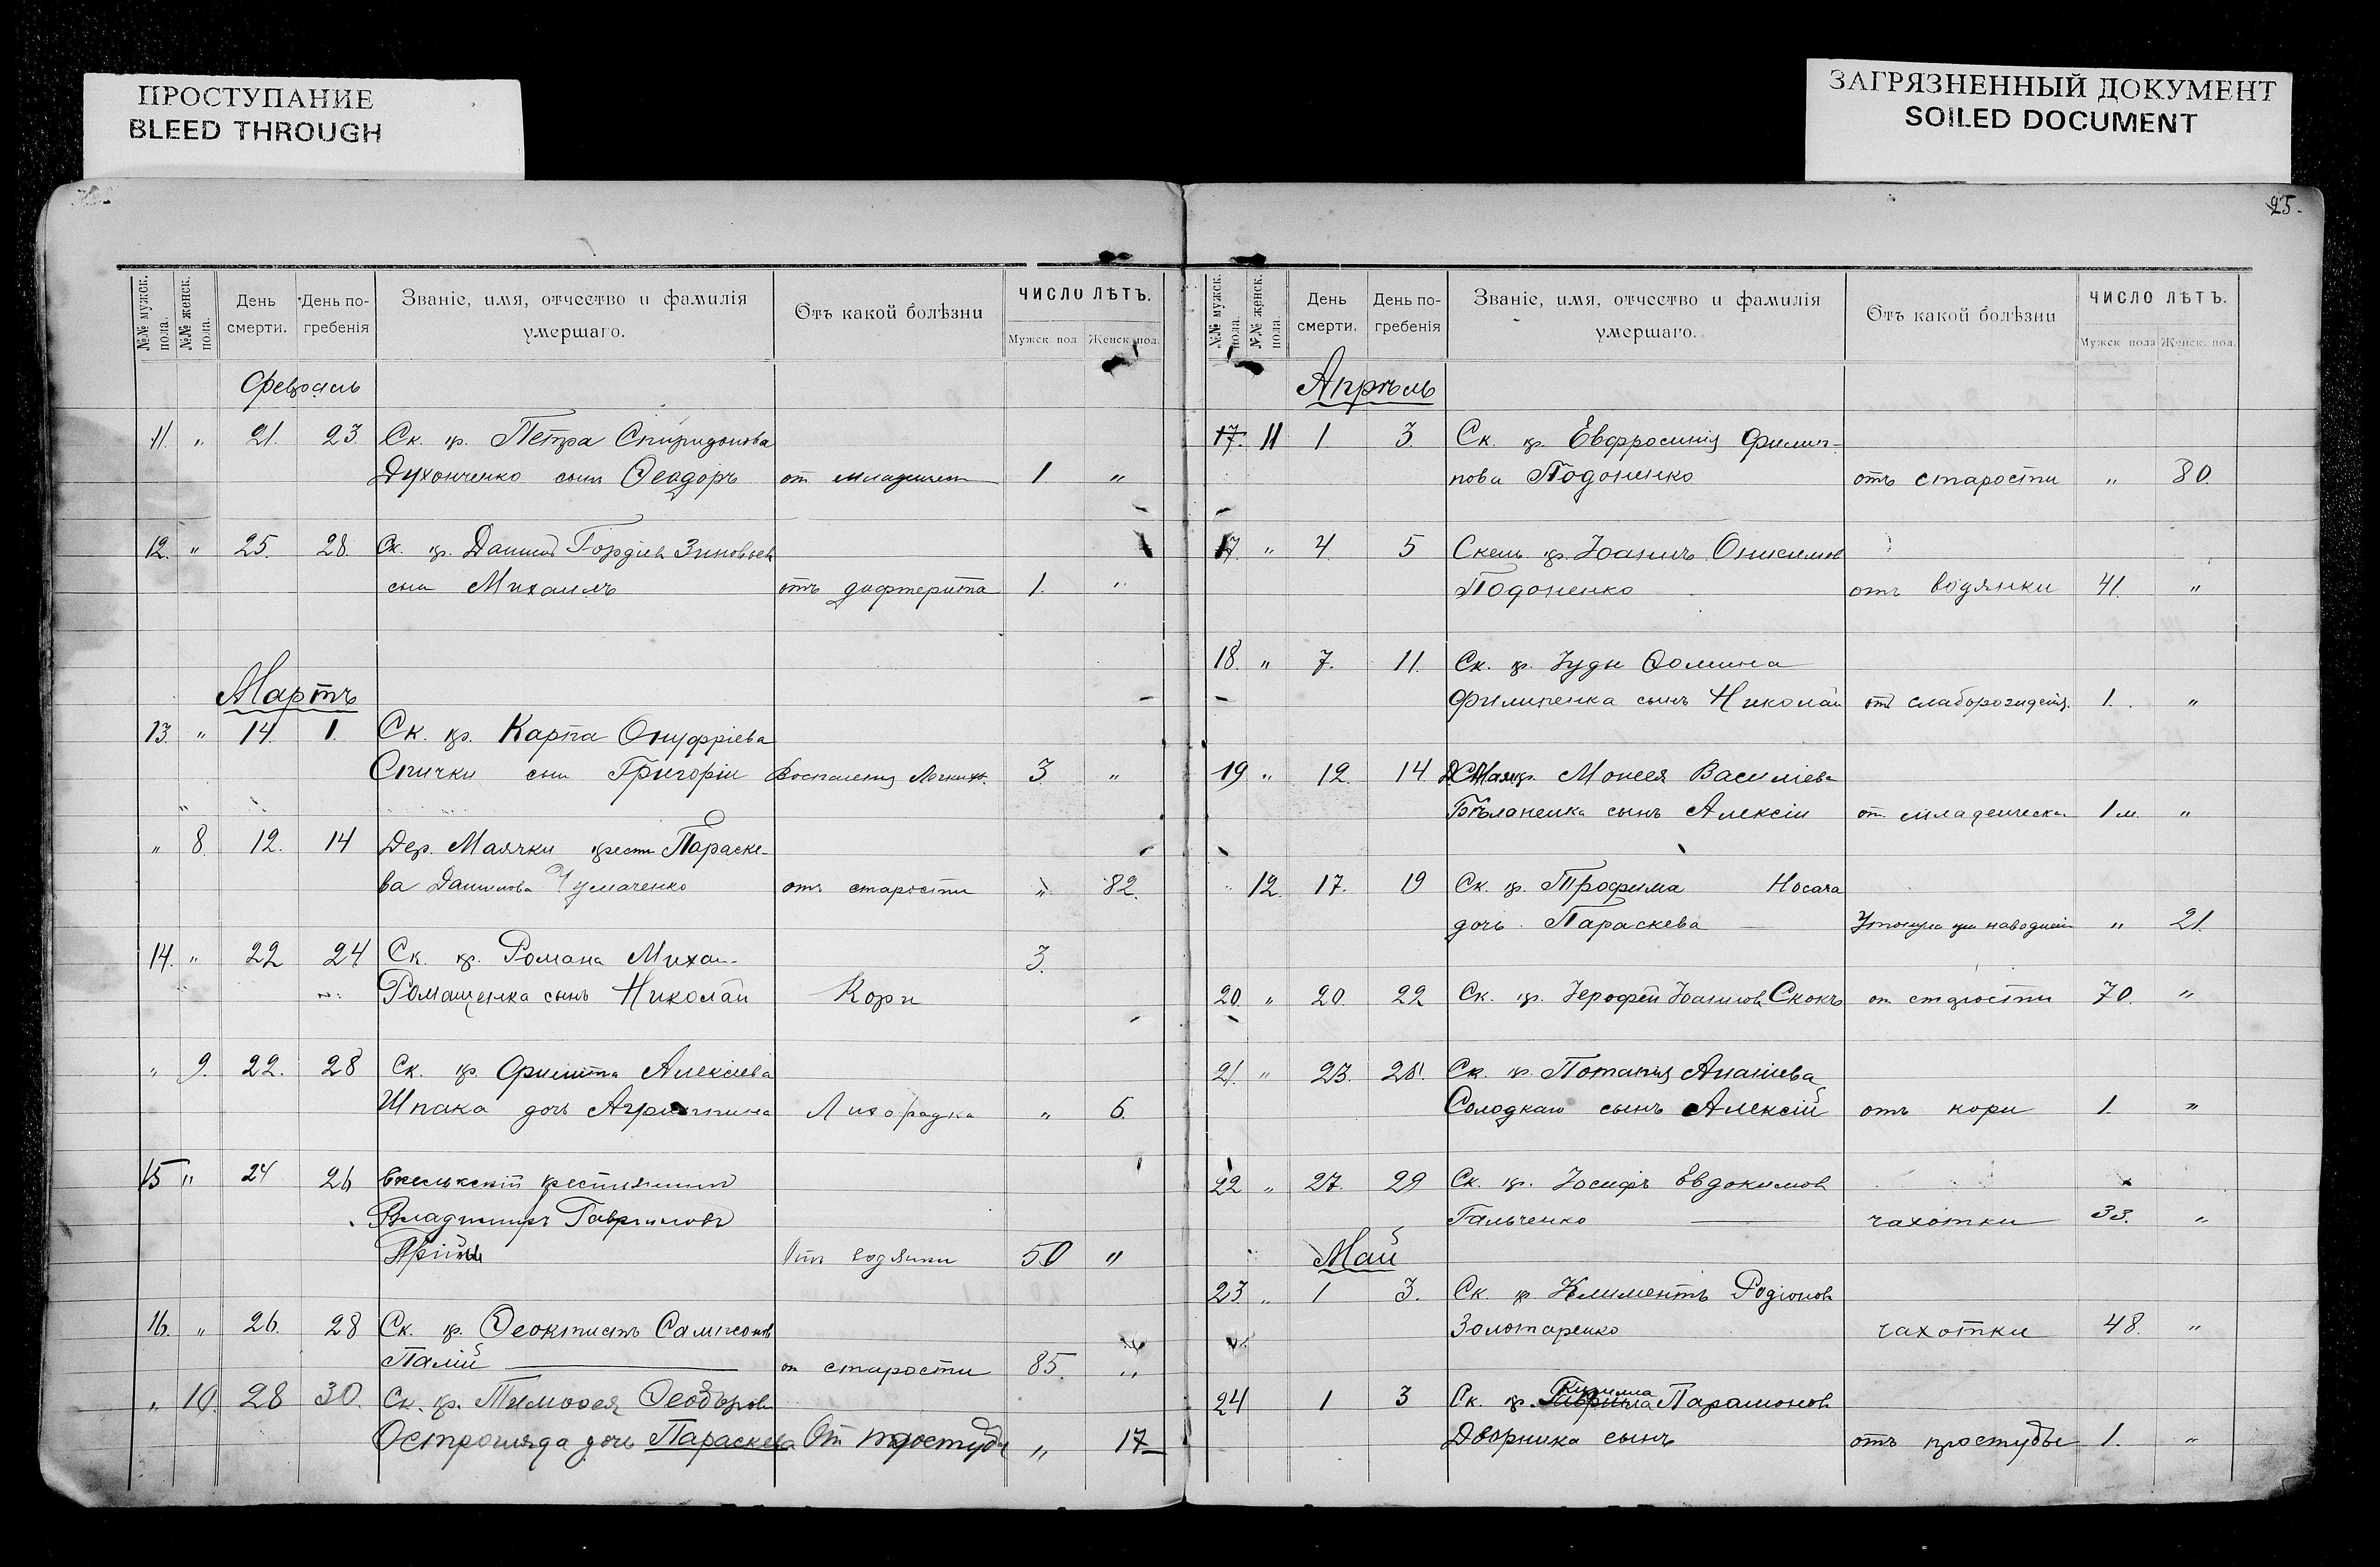 ПРОСТУПАНИЕ
BLEED THROUGH
ЗАГРЯЗНЕННЫЙ ДОКУМЕНТ
SOILED DOCUMENT
25.
№№ мужск. пола.
№№ женск. пола.
День смерти.
День по-гребенія
Званіе, имя, отчество и фамилія умершаго.
Отъ какой болѣзни
ЧИСЛО ЛѢТЪ.
Мужск. пол
Женск. пол.
Февраль
11. " 21. 23. Ск. кр. Петра Спиридонова
Духонченко сынъ Ѳеодоръ от младенческ 1 "
12. " 25. 28. Ск. кр. Данила Гордіев Зиновьев
сын Михаилъ отъ дифтерита 1. "
Мартъ
13. " 14. 1. Ск. кр. Карпа Онуфріева
Спички сын Григорій Воспаления Легкихъ. 3 "
" 8. 12. 14 Дер. Маячки крест. Параске-
ва Данилова Чумаченко отъ старости " 82.
14. " 22 24 Ск. кр. Романа Михаи- 3.
Ромащенка сынъ Николай Кори
" 9. 22. 28 Ск. кр. Филиппа Алексіева
Шпака дочь Агриппина Лихорадка " 6.
15 " 24 26 крестьянинъ
Владимиръ Гавриловъ
Отъ водянки 50 "
16. " 26. 28 Ск. кр. Ѳеоктистъ Сампсонов
Палій от старости 85. "
" 10. 28 30. Ск. кр. Тимоѳея Ѳеодоров
Остроляда дочь Параскева От простуды " 17
№№ мужск. пола.
№№ женск. пола.
День смерти.
День по-гребенія
Званіе, имя, отчество и фамилія умершаго.
Отъ какой болѣзни
ЧИСЛО ЛѢТЪ.
Мужск. пола
Женск. пол.
Апрѣль
17. 11 1 3. Ск. кр. Евфросинія Филип-
пова Подоненко отъ старости " 80.
17 " 4 5 Скель. кр. Іоаннъ Онисимов
Подоненко отъ водянки 41. "
18. " 7. 11. Ск. кр. Іуды Ѳомина
Филипенка сынъ Николай отъ слаборожденія. 1. "
19 " 12. 14. Моисея Василіева
Бѣланенка сынъ Алексій от младенческа 1 м. "
" 12. 17. 19 Ск. кр. Трофима Носача
дочь Параскева Утонула при наводненіи " 21.
20. " 20. 22 Ск. кр. Іерофей Іоаннов Скокъ от старости 70. "
21. " 23. 25. Ск. кр. Потапія Ананіева
Солодкаго сынъ Алексій отъ кори 1. "
22 " 27. 29 Ск. кр. Іосифъ Евдокимов
Гальченко чахотки 33. "
Май
23. " 1 3. Ск. кр. Климентъ Родіонов
Золотаренко чахотки 48. "
24 1 3 Ск. кр. Кирилла Парамонов
Дворника сынъ отъ простуды 1. "